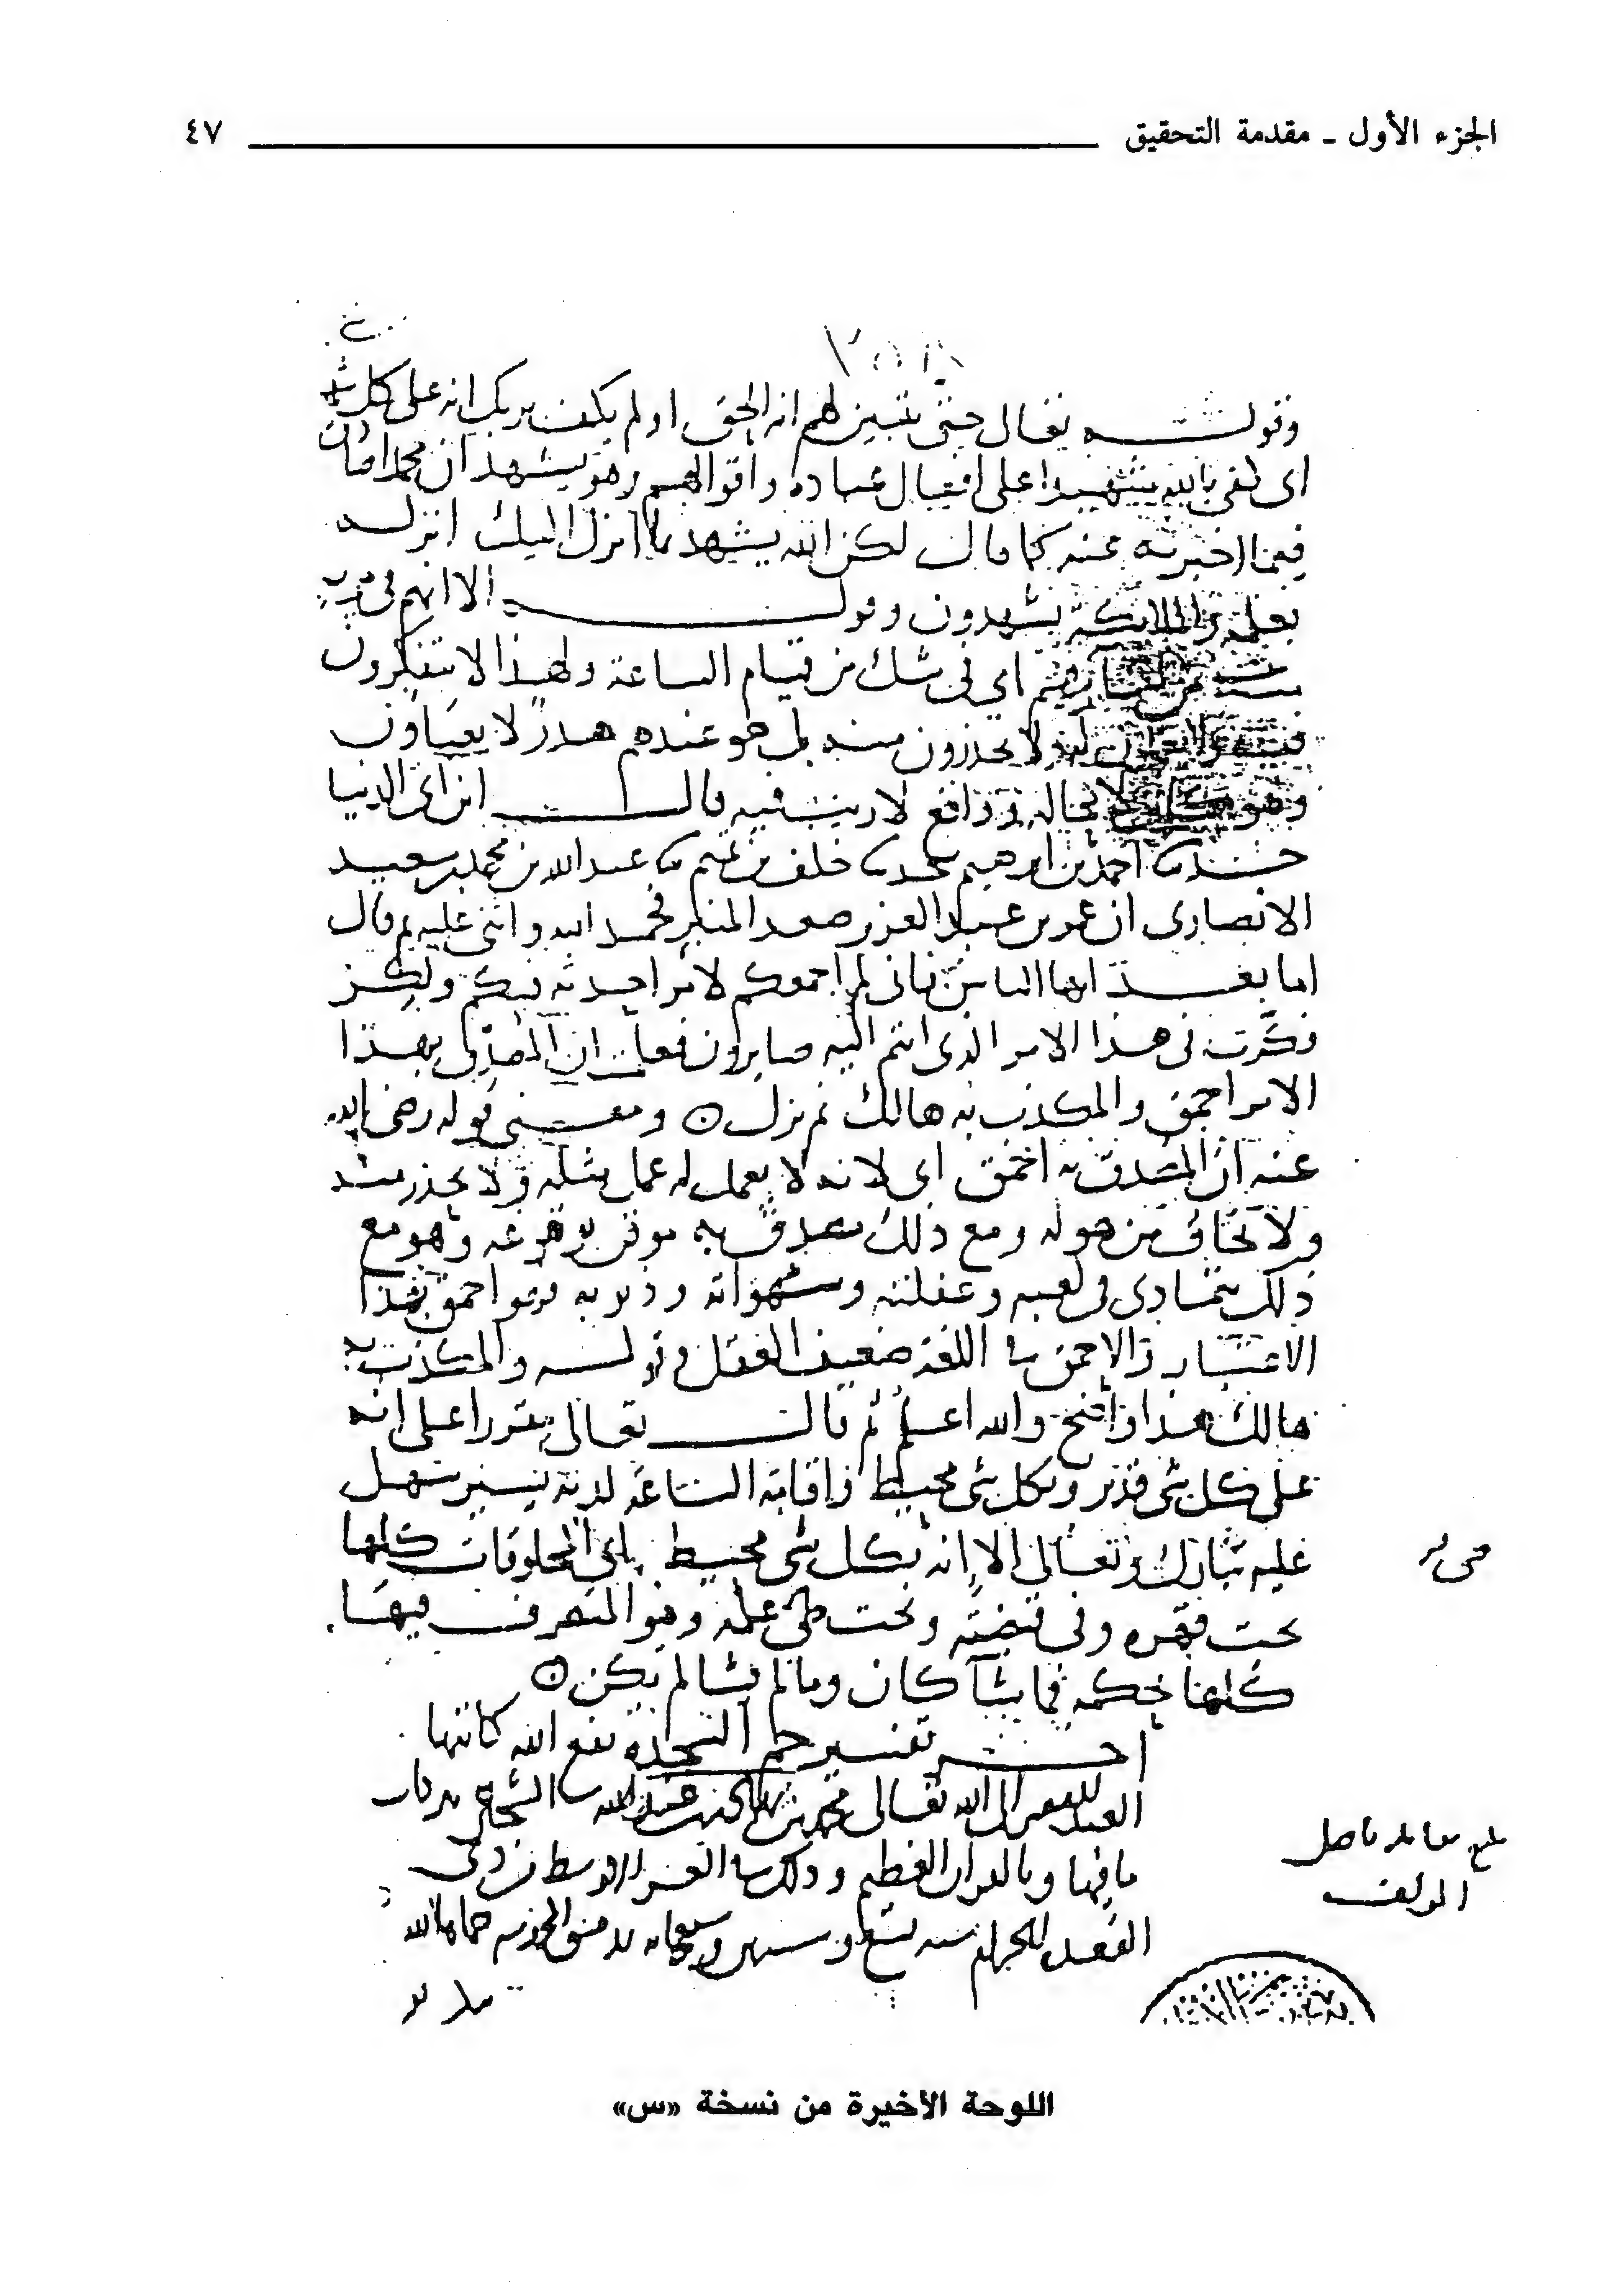 الجزء الأول ـ مقدمة التحقيق ٤٧
وقولـــه تعالى حتى يتبين لهم انه الحق اولم يكف بربك انه على كل شي
اى كفى بالله شهيدا على افعال عباده واقوالهم وهو يشهد ان محمدا صادق
فيما اخبر به عنه كما قال لكن الله يشهد بما انزل اليك انزله
بعلمه والملائكة يشهدون وقولـــه الا انهم فى مرية
من لقا ربهم اى فى شك من قيام الساعة ولهذا لا يتفكرون
فيه ولا يعملون له ولا يحذرون منه بل هو عندهم هدر لا يعباون
وهو كاين لا محالة وواقع لا ريب فيه قال ابن ابى الدنيا
حدثنا احمد بن ابرهيم خلف بن تميم ثنا عبد الله بن محمد بن سعيد
الانصارى ان عمر بن عبد العزيز صعد المنبر فحمد الله واثنى عليه ثم قال
اما بعد ايها الناس فانى لم اجمعكم لامر احدثه فيكم ولكن
فكرت فى هذا الامر الذى انتم اليه صايرون فعلمت ان المصدق بهذا
الامر احمق والمكذب به هالك ثم نزل ٥ ومعنى قوله رضى الله
عنه ان المصدق به احمق اى لانه لا يعمل له عمل مثله ولا يحذر منه
ولا يخاف من هوله ومع ذلك مصدق به موقن بوقوعه وهو مع
ذلك يتمادى فى لعبه وغفلته وشهواته وذنوبه فهو احمق بهذا
الاعتبار والاحمق فى اللغة ضعيف العقل وقولـــه والمكذب به
هالك هذا واضح والله اعلم ثم قال تعالى مقررا على انه
على كل شى قدير وبكل شى محيط واقامة الساعة لديه يسير سهل
عليه تبارك وتعالى الا انه بكل شى محيط اى المخلوقات كلها
تحت قهره وفى قبضته وتحت طى علمه وهو المتصرف فيها
كلها بحكمه فما يشا كان وما لم يشا لم يكن ٥
اخـــر تفسير حم السجدة نفع الله كاتبها
العبد الفقير الى الله تعالى محمد بن
ما فيها وبالقران العظيم وذلك فى العشر الاوسط من ذى
القعدة الحرام سنه تسع وخمسين وسبعمايه بدمشق المحروسه حماها الله
بلغ مقابلة باصل
المولف
اللوحة الأخيرة من نسخة «س»